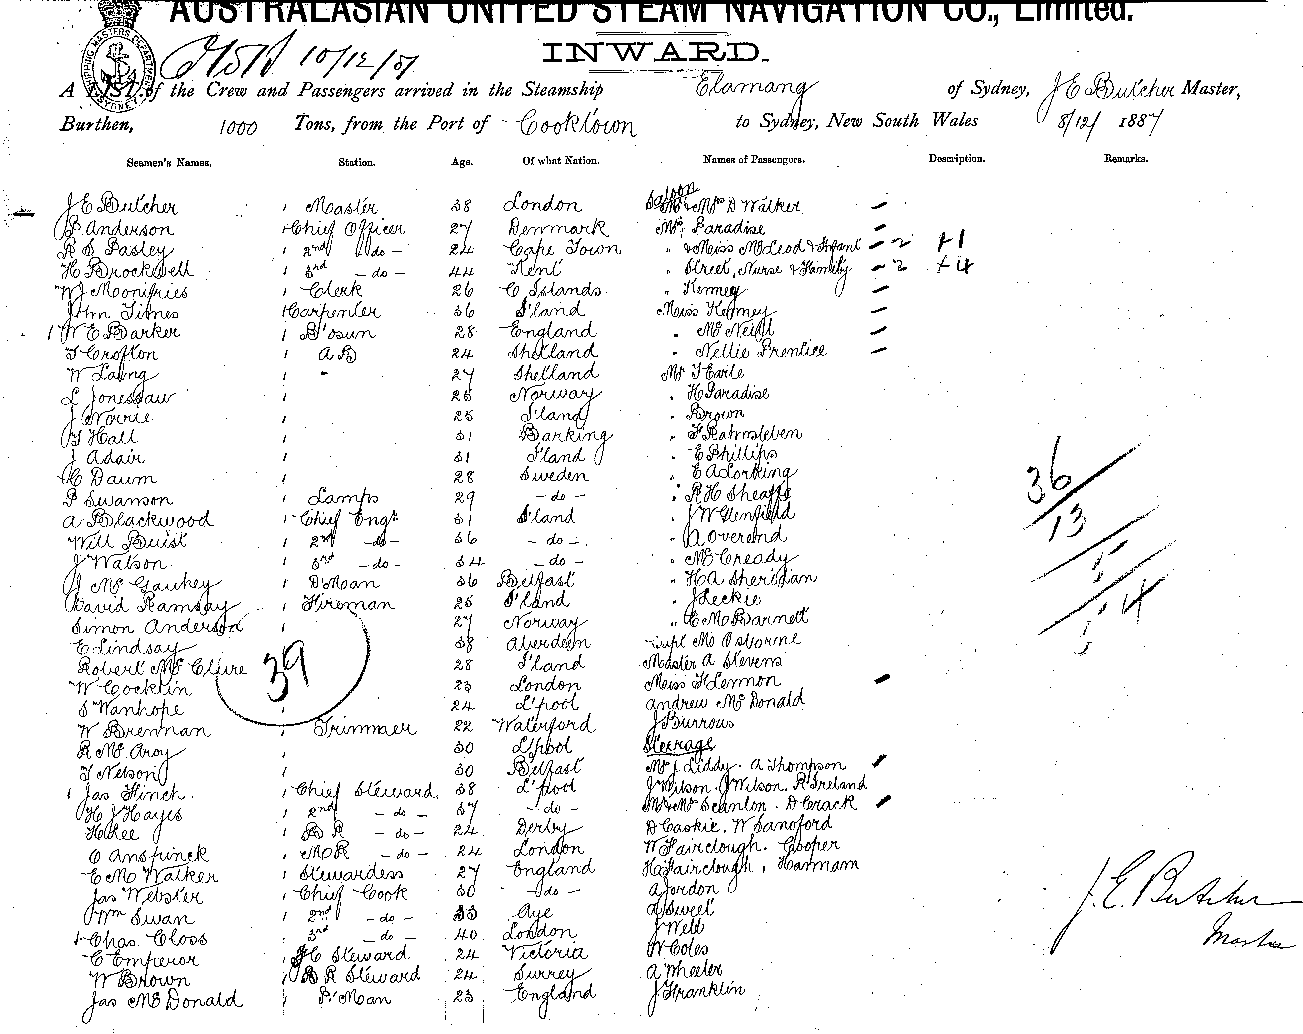 AUSTRALASIAN UNITED STEAM NAVIGATION CO., Limited.
INWARD.
10/12/87
A LIST of the Crew and Passengers arrived in the Steamship Elamang of Sydney, J E Butcher Master,
Burthen, 1000 Tons, from the Port of Cooktown to Sydney, New South Wales 8/12/ 1887
Seamen's Names. Station. Age. Of what Nation. Names of Passengers. Description. Remarks.
J E Butcher 1 Master 38 London Saloon Mr & Mrs D Walker
P Anderson 1 Chief Officer 27 Denmark Mrs Paradise
R S Pasley 1 2nd - do - 24 Cape Town " & Miss McLeod & Infant - 2 +1
H Brockwell 1 3rd - do - 44 Kent " Street, Nurse & Family - 2 +4
W J Moonifries 1 Clerk 26 C Islands " Kenney
Carpenter 36 S'land Miss Kenney
1 W E Barker 1 B'osun 28 England " McNeill
T Crofton 1 A B 24 Shetland " Nellie Prentice
W Laing 1 " 27 Shetland Mr T Earle
L 1 25 Norway " H Paradise
J Norrie 1 25 S'land " Brown
T Hall 1 31 Barking " F Rahmsleben
J Adair 1 31 S'land " E Phillips
C Daum 1 28 Sweden " E A Lorking
P Swanson 1 Lamps 29 - do - " R H Sheaffe
A Blackwood 1 Chief Engr 31 S'land " J W
Will Buist 1 2nd - do - 36 - do - " A Overend
J Watson 1 3rd - do - 34 - do - " McCready
J McGaukey 1 D'Man 36 Belfast " H A Sheridan
David Ramsay 1 Fireman 25 S'land " J Leckie
Simon Anderson 1 27 Norway " C McBarnett
E Lindsay 38 Aberdeen Capt McOsborne
Robert McClure 28 S'land Master A Stevens
W Cocklin 23 London Miss F Lennon
S Wanhope 24 L'pool Andrew McDonald
W Brennan 1 Trimmer 22 Waterford J Burrows
R McAroy 1 30 L'pool Steerage
T Nelson 1 30 Belfast Mrs J Liddy. A Thompson
1 Jas Hinch 1 Chief Steward 38 L'pool J Wilson. J Wilson. R Ireland
H J Hayes 1 2nd - do - 37 - do - Mr & Mrs Scanlon. D Crack
H Kee 1 B R - do - 24 Derby D Caskie. W Sandford
C Ansfinck 1 M R - do - 24 London W Fairclough. Cooper
E M Walker 1 Stewardess 27 England H Fairclough, Harmam
Jas Webster 1 Chief Cook 30 - do - A Jordon
Wm Swan 1 2nd - do - 33 Aye A Sweet
Chas. Closs 1 3rd - do - 40 London J Well
C Emperor 1 F C Steward 24 Victoria W Coles
W Brown 1 B R Steward 24 Surrey A Wheeler
Jas McDonald 1 P'Man 23 England J Franklin
39
36
13
1
1 4
1
J. E. Butcher
Master